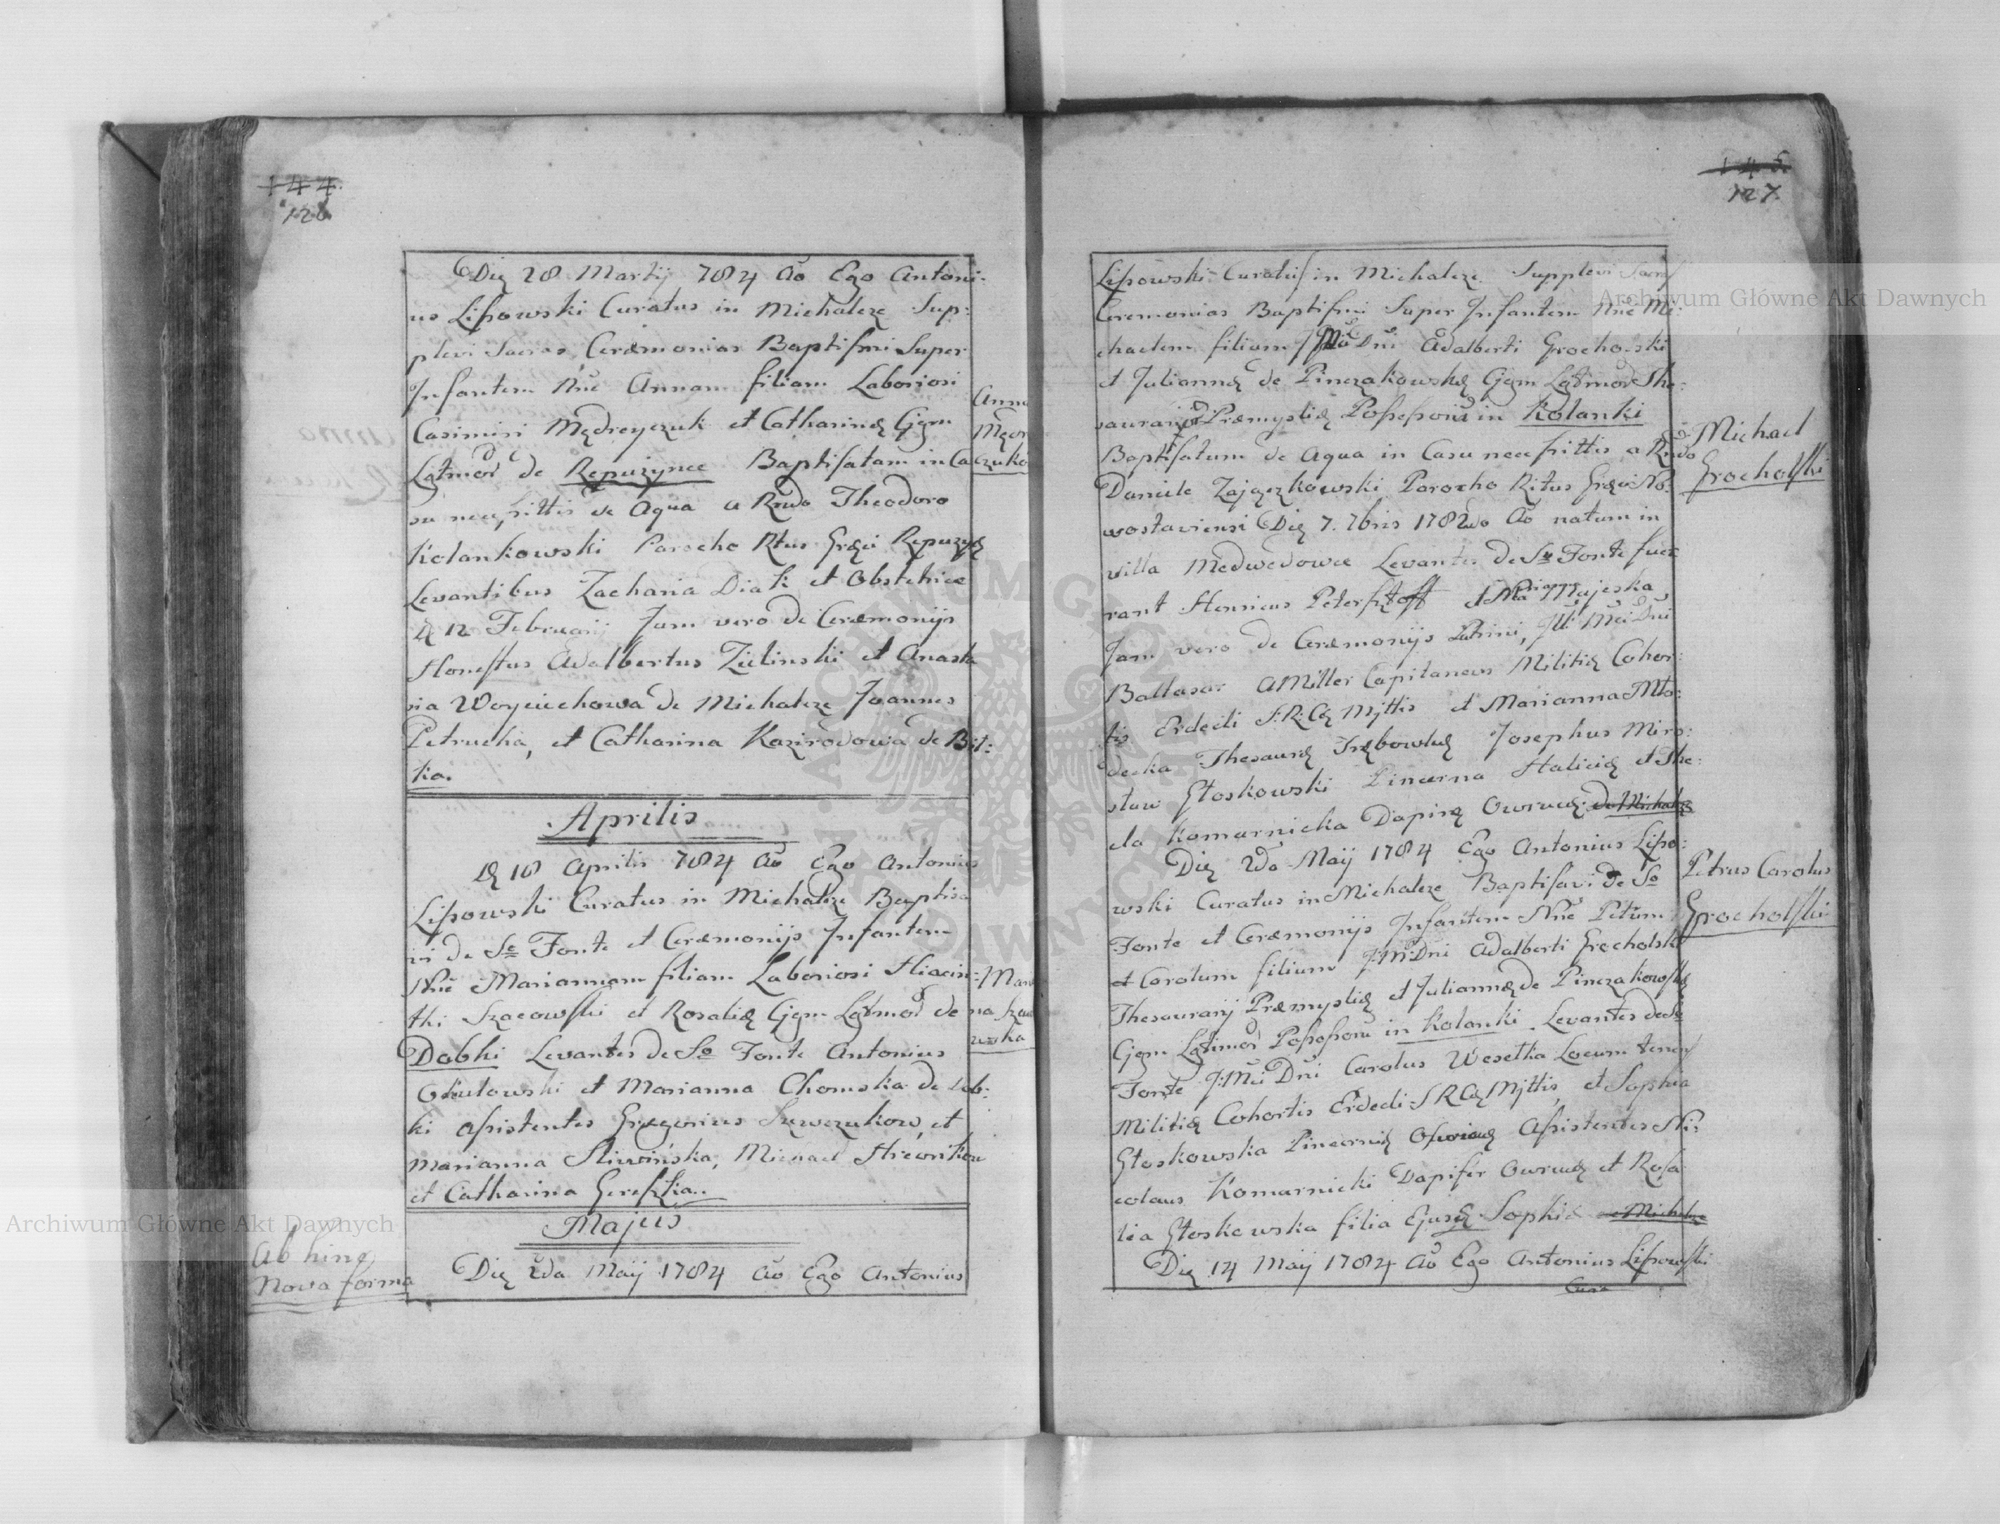 144.
126
Dię 28 Martij 784 Aō Ego Antoni-
us Lipowski Curatus in Michalcze Sup:
plevi Sacras Ceræmonias Baptismi Super
Infantem Nnē Annam filiam Laboriosi
Casimiri Mędreyczuk et Catharinę Cjgm
Lgtmor̄ de Repużynce Baptisatam in Ca
su necessittis de Aqua a Rndo Theodoro
Kolankowski Parocho Rtus Gręci Repużyę
Levantibus Zacharia Diak et Obstetrice
ę 12 Februarij Jam vero de Ceræmonijs
Honestus Adalbertus Zielinski et Anasta
sia Woyciechowa de Michalcze Joannes
Petrucha, et Catharina Kazirodowa de Bił:
ka.
Anna
Mędr
czuko
Aprilis
Dę 18 Aprilis 784 Aō Ego Antonius
Lipowski Curatus in Michalcze Baptisa
vi de So Fonte et Ceræmonijs Infantem
Nnē Mariannam filiam Laboriosi Hiacin:
thi Szacowski et Rosalię Cjgm Lgtmor̄ de
Dobki Levantes de So Fonte Antonius
et Marianna Chomska de Dob:
ki Asistentes Gregorius Szewczukow, et
Marianna Sliwińska, Michael Hreonikow
et Catharina
Mari
na Szaco
wska
Majus
Ab hinc
Nova forma
Dię 2da Maij 1784 Aō Ego Antonius
145.
127.
Lipowski Curatus in Michalcze Supplevi Sacras
Ceremonias Baptismi Super Infantem Nnē Mi:
chaelem filium Dni Adalberti Grocholski
et Juliannę de Pinczakowskę Cjgm Lgtmor̄ The:
saurarij Præmyslię Possessorū in Kolanki
Baptisatum de Aqua in Casu necessittis a Rndo
Daniele Zajączkowski Parocho Ritus Gręci No:
wostaviensi Dię 7. 7bris 1782do Aō natum in
villa Medwedowce Levantes de So Fonte fue
rant Henricus et Majeska
Jam vero de Ceræmonijs Patrini, Dni
Baltasar A Miller Capitaneus Militię Cohor:
tis Erdedi S: R: Cę Mjttis et Marianna Mło:
decka Thesaurę Trębowlę Josephus Miro:
sław Głoskowski Pincerna Halicię et The
cla Komarnicka Dapirę Owrucę de Michalcze
Michael
Grocholski
Dię 2da Maij 1784 Ego Antonius Lipo:
wski Curatus in Michalcze Baptisavi de So
Fonte et Ceræmonijs Infantem Nnē Petrum
et Carolum filium Dni Adalberti Grocholski
Thesaurarij Præmyslię et Juliannę de Pinczakowskę
Cjgm Lgtmor̄ Possessorū in Kolanki. Levantes de So
Fonte Dni Carolus Wesetka Locum tenens
Militię Cohortis Erdedi S R Cę Mjttis, et Sophia
Głoskowska Pincernię Asistentes Ni:
colaus Komarnicki Dapifer Owrucę et Rosa
lia Głoskowska filia Ejusdę Sophię Michalcze
Petrus Carolus
Grocholski
Dię 14 Maij 1784 Aō Ego Antonius Lipowski
Cura
Archiwum Główne Akt Dawnych
Archiwum Główne Akt Dawnych
ARCHIWUM GŁÓWNE AKT DAWNYCH